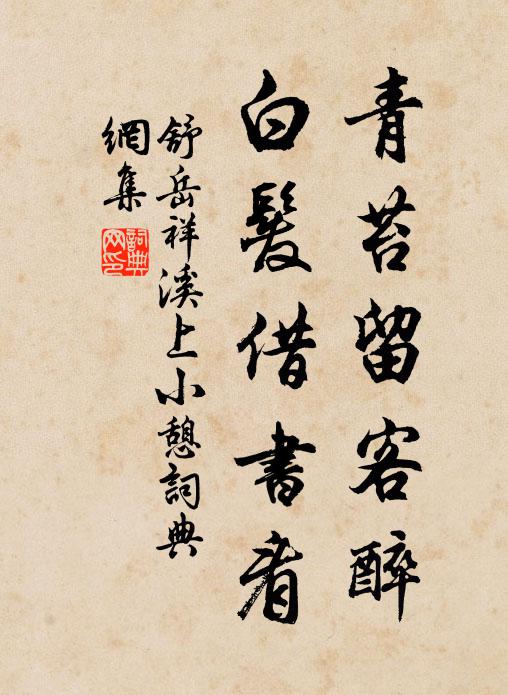 青苔留客醉
白髮借書看
舒岳祥溪上小憩詞典
網集
詞典
網印